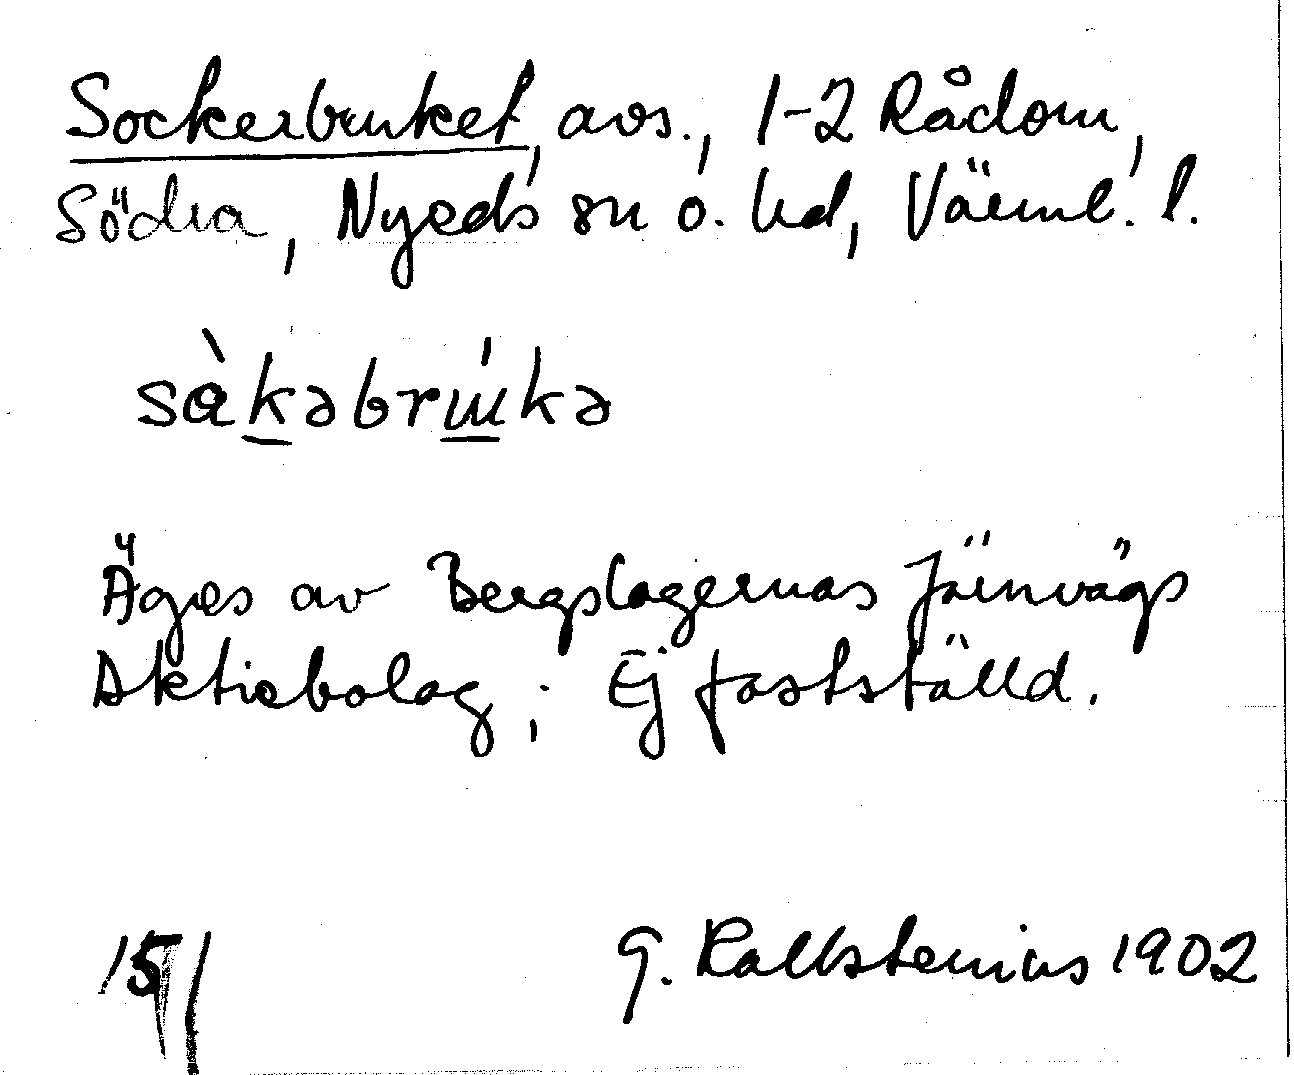 Sockerbruket, avs., 1-2 Rådom,
Södra, Nyeds sn o. hd, Värml. l.
sàkəbrúkə
Äges av Bergslagernas Järnvägs
Aktiebolag; Ej fastställd.
G. Kallstenius 1902